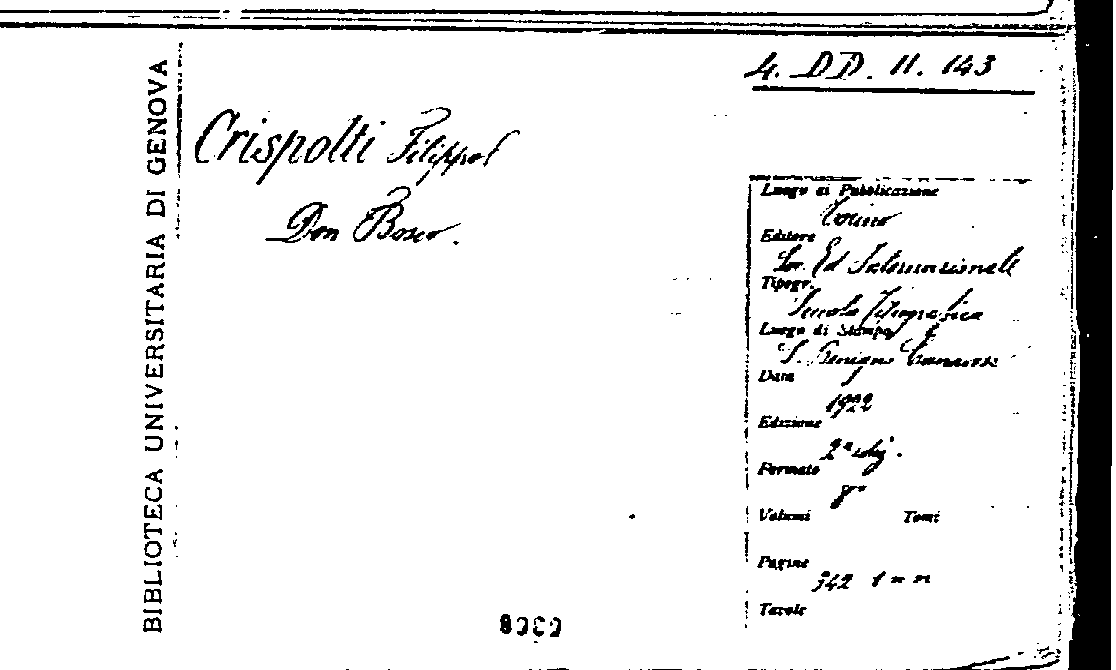 4. DD. 11. 143
BIBLIOTECA UNIVERSITARIA DI GENOVA
Crispolti Filippo
Don Bosco.
Luogo di Pubblicazione
Torino
Editore
Soc. Ed Internazionale
Tipogr.
Scuola Tipografica
Luogo di Stampa
S. Benigno Canavese
Data
1922
Edizione
2ª ediz.
Formato
8º
Volumi Tomi
Pagine
342
Tavole